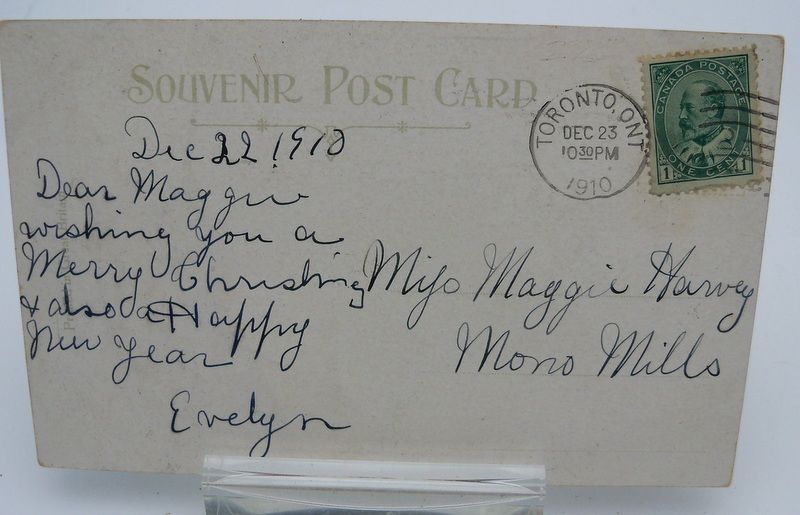 SOUVENIR POST CARD
TORONTO, ONT
DEC 23
1030PM
1910
CANADA POSTAGE
ONE CENT
1 1
Dec 22 1910
Dear Maggie
wishing you a
Merry Christmas
& also a Happy
New Year
Evelyn
Miss Maggie Harvey
Mono Mills